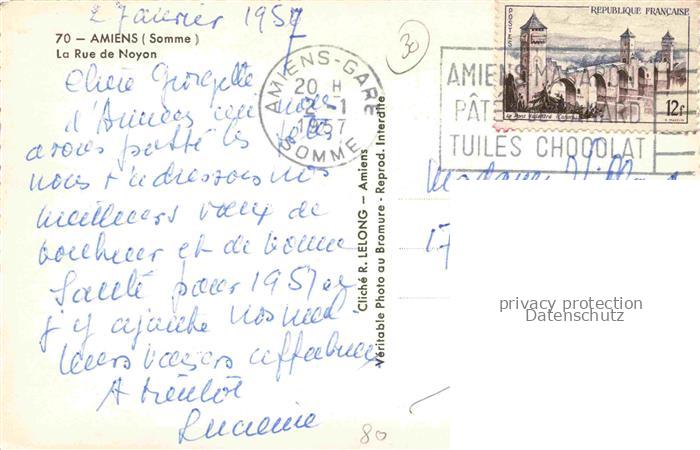 2 Janvier 1957
70 — AMIENS (Somme)
La Rue de Noyon
Chère Georgette
d'Amiens où nous
avons passé les fêtes
nous t'adressons nos
meilleurs vœux de
bonheur et de bonne
Santé pour 1957 et
j'y ajoute nos meil
leurs baisers affectueux
A bientôt
Lucienne
80
30
AMIENS-GARE
20 H
2-1
1957
SOMME
Cliché R. LELONG — Amiens
Véritable Photo au Bromure - Reprod. Interdite
POSTES
REPUBLIQUE FRANÇAISE
12f
AMIENS
TUILES CHOCOLAT
Madame
17
privacy protection
Datenschutz